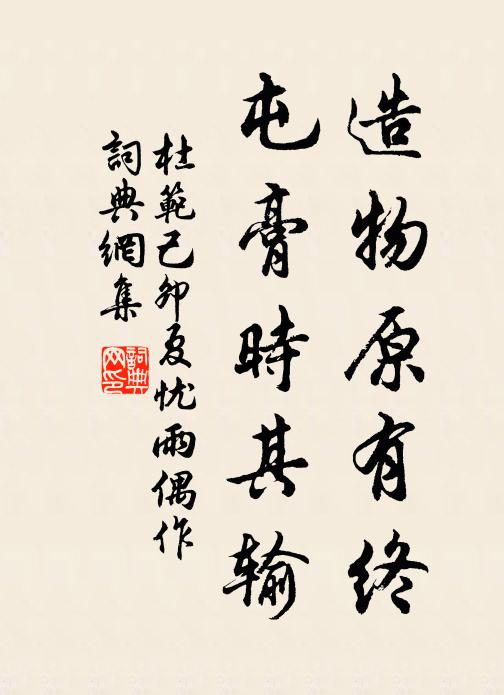 造物原有終
屯膏時其输
杜範己卯夏忧雨偶作
詞典網集
詞典网印